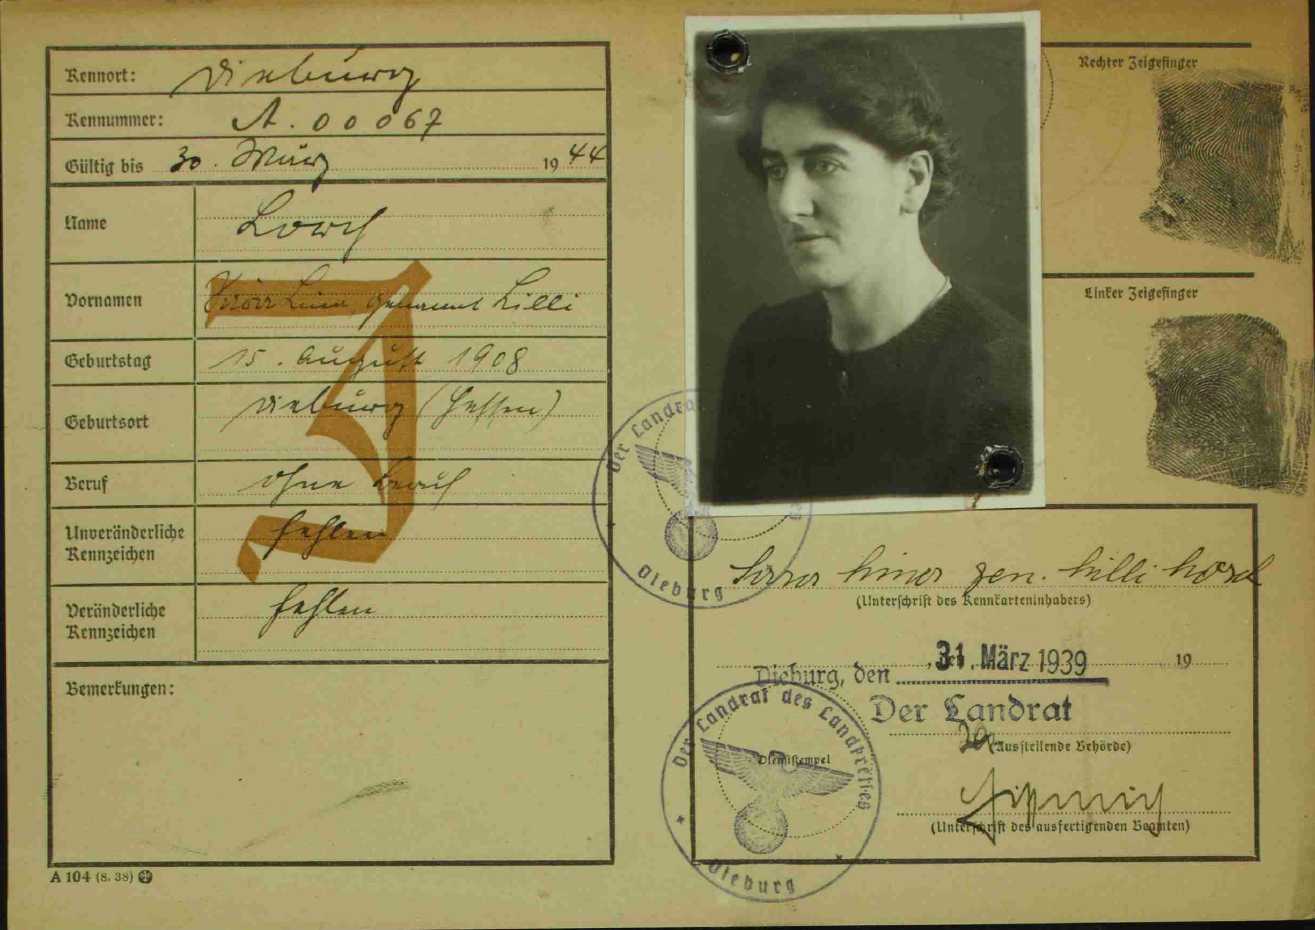 Kennort: Dieburg
Kennummer: A.00067
Gültig bis 30. März 1944
Name Lorch
Vornamen Sara Lina, genannt Lilli
Geburtstag 15. August 1908
Geburtsort Dieburg (Hessen)
Beruf ohne Beruf
Unveränderliche
Kennzeichen fehlen
Veränderliche
Kennzeichen fehlen
Bemerkungen:
J
A 104 (8. 38)
Rechter Zeigefinger
Linker Zeigefinger
Der Landrat
Dieburg
Sara Lina gen. Lilli Lorch
(Unterschrift des Kennkarteninhabers)
Dieburg, den 31. März 1939 19
Der Landrat
(Ausstellende Behörde)
Der Landrat des Landkreises
Dieburg
Dienststempel
(Unterschrift des ausfertigenden Beamten)